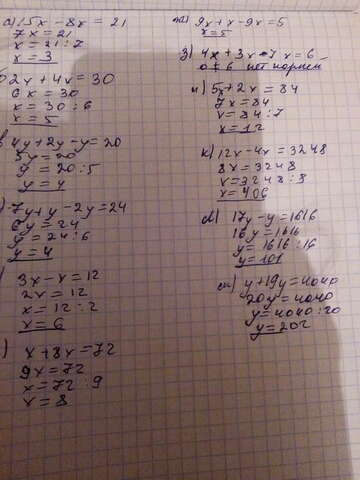 а) 15x - 8x = 21
7x = 21
x = 21 : 7
x = 3
б 2x + 4x = 30
6x = 30
x = 30 : 6
x = 5
в 4y + 2y - y = 20
5y = 20
y = 20 : 5
y = 4
) 7y + y - 2y = 24
6y = 24
y = 24 : 6
y = 4
) 3x - x = 12
2x = 12
x = 12 : 2
x = 6
) x + 8x = 72
9x = 72
x = 72 : 9
x = 8
ж) 9x + x - 9x = 5
x = 5
з) 4x + 3x - 7x = 6
0 ≠ 6 нет корней
и) 5x + 2x = 84
7x = 84
x = 84 : 7
x = 12
к) 12x - 4x = 3248
8x = 3248
x = 3248 : 8
x = 406
л) 17y - y = 1616
16y = 1616
y = 1616 : 16
y = 101
m) y + 19y = 4040
20y = 4040
y = 4040 : 20
y = 202